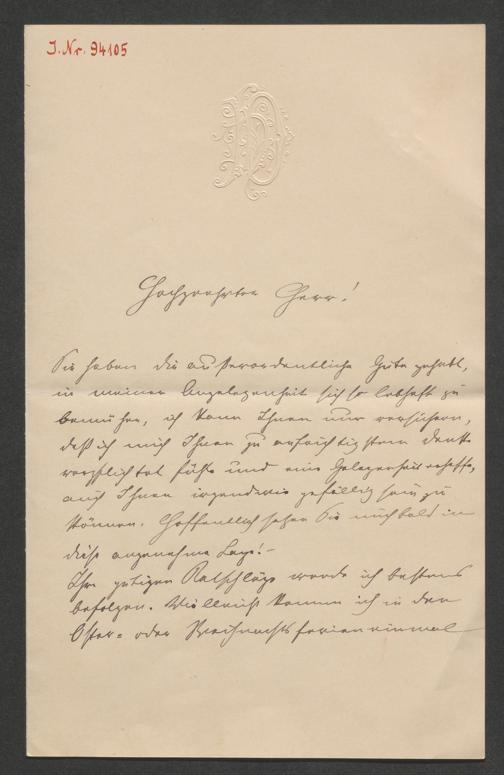 I. Nr. 94105
Hochgeehrter Herr!
Sie haben die außerordentliche Güte gehabt,
in meiner Angelegenheit sich so lebhaft zu
bemühen, ich kann Ihnen nur versichern,
daß ich mich Ihnen zu aufrichtigstem Dank
verpflichtet fühle und eine Gelegenheit erhoffe,
auch Ihnen irgendwie gefällig sein zu
können. Hoffentlich sehen Sie mich bald in
diese angenehme Lage! –
Ihre gütigen Ratschläge werde ich bestens
befolgen. Vielleicht komme ich in den
Oster- oder Weihnachtsferien einmal